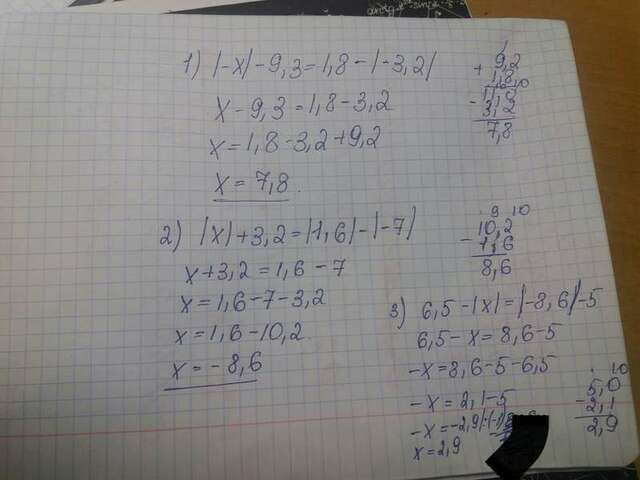 1) |-x| - 9,3 = 1,8 - |-3,2|
x - 9,3 = 1,8 - 3,2
x = 1,8 - 3,2 + 9,2
x = 7,8.
+ 9,2
1,8
- 3,2
7,8
2) |x| + 3,2 = |1,6| - |-7|
x + 3,2 = 1,6 - 7
x = 1,6 - 7 - 3,2
x = 1,6 - 10,2.
x = - 8,6
9 10
- 10,2
1,6
8,6
3) 6,5 - |x| = |-8,6| - 5
6,5 - x = 8,6 - 5
-x = 8,6 - 5 - 6,5
-x = 2,1 - 5
-x = -2,9
x = 2,9
10
- 5,0
2,1
2,9